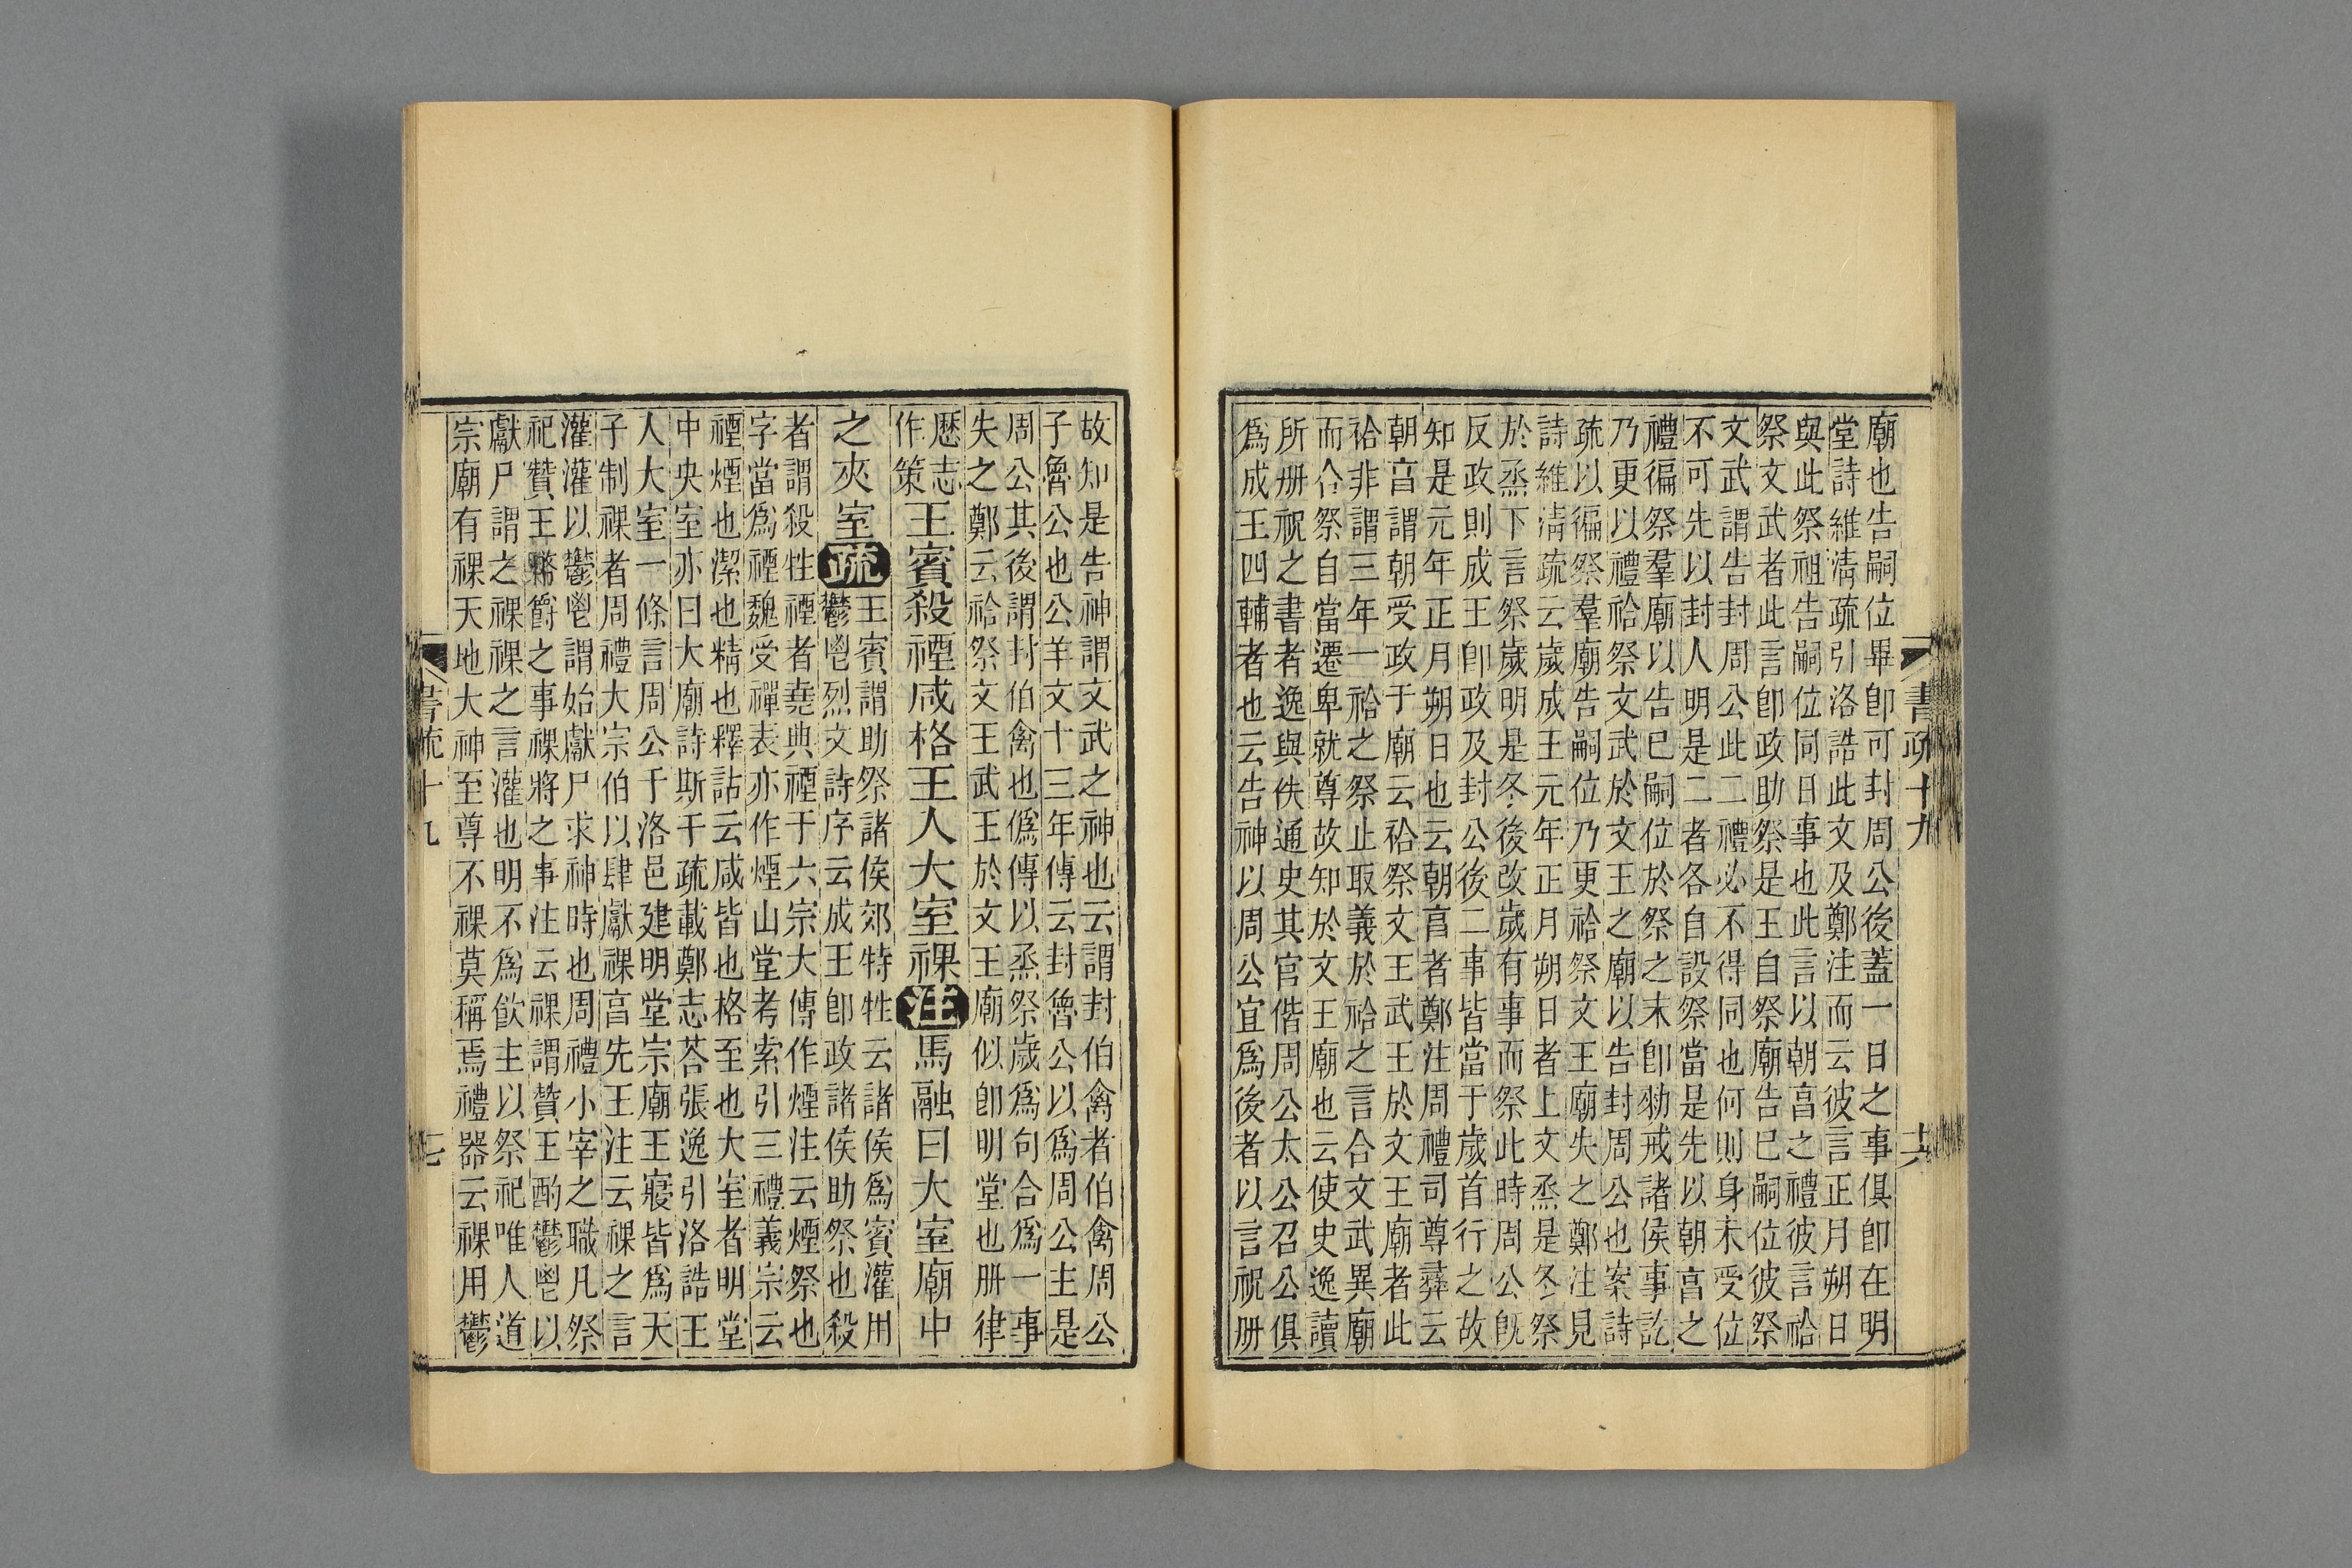 廟也告嗣位畢卽可封周公後蓋一日之事俱卽在明
堂詩維淸疏引洛誥此文及鄭注而云彼言正月朔日
與此祭祖告嗣位同日事也此言以朝亯之禮彼言祫
祭文武者此言卽政助祭是王自祭廟告巳嗣位彼祭
文武謂告封周公此二禮必不得同也何則身未受位
不可先以封人明是二者各自設祭當是先以朝亯之
禮徧祭羣廟以告巳嗣位於祭之末卽勑戒諸侯事訖
乃更以禮祫祭文武於文王之廟以告封周公也案詩
疏以徧祭羣廟告嗣位乃更祫祭文王廟失之鄭注見
詩維淸疏云歲成王元年正月朔日者上文烝是冬祭
於烝下言祭歲明是冬後改歲有事而祭此時周公旣
反政則成王卽政及封公後二事皆當于歲首行之故
知是元年正月朔日也云朝亯者鄭注周禮司尊彝云
朝亯謂朝受政于廟云祫祭文王武王於文王廟者此
祫非謂三年一祫之祭止取義於祫之言合文武異廟
而合祭自當遷卑就尊故知於文王廟也云使史逸讀
所册祝之書者逸與佚通史其官偕周公太公召公俱
爲成王四輔者也云告神以周公宜爲後者以言祝册
書疏十九
十六
故知是告神謂文武之神也云謂封伯禽者伯禽周公
子魯公也公羊文十三年傳云封魯公以爲周公主是
周公其後謂封伯禽也僞傳以烝祭歲爲句合爲一事
失之鄭云祫祭文王武王於文王廟似卽明堂也册律
歷志
作策
王賓殺禋咸格王入大室祼注馬融曰大室廟中
之夾室疏
王賓謂助祭諸侯郊特牲云諸侯爲賓灌用
鬱鬯烈文詩序云成王卽政諸侯助祭也殺
者謂殺牲禋者堯典禋于六宗大傳作煙注云煙祭也
字當爲禋魏受禪表亦作煙山堂考索引三禮義宗云
禋煙也潔也精也釋詁云咸皆也格至也大室者明堂
中央室亦曰大廟詩斯干疏載鄭志荅張逸引洛誥王
人大室一條言周公于洛邑建明堂宗廟王寢皆爲天
子制祼者周禮大宗伯以肆獻祼亯先王注云祼之言
灌灌以鬱鬯謂始獻尸求神時也周禮小宰之職凡祭
祀贊王幣爵之事祼將之事注云祼謂贊王酌鬱鬯以
獻尸謂之祼祼之言灌也明不爲飮主以祭祀唯人道
宗廟有祼天地大神至尊不祼莫稱焉禮器云祼用鬱
書疏十九
七